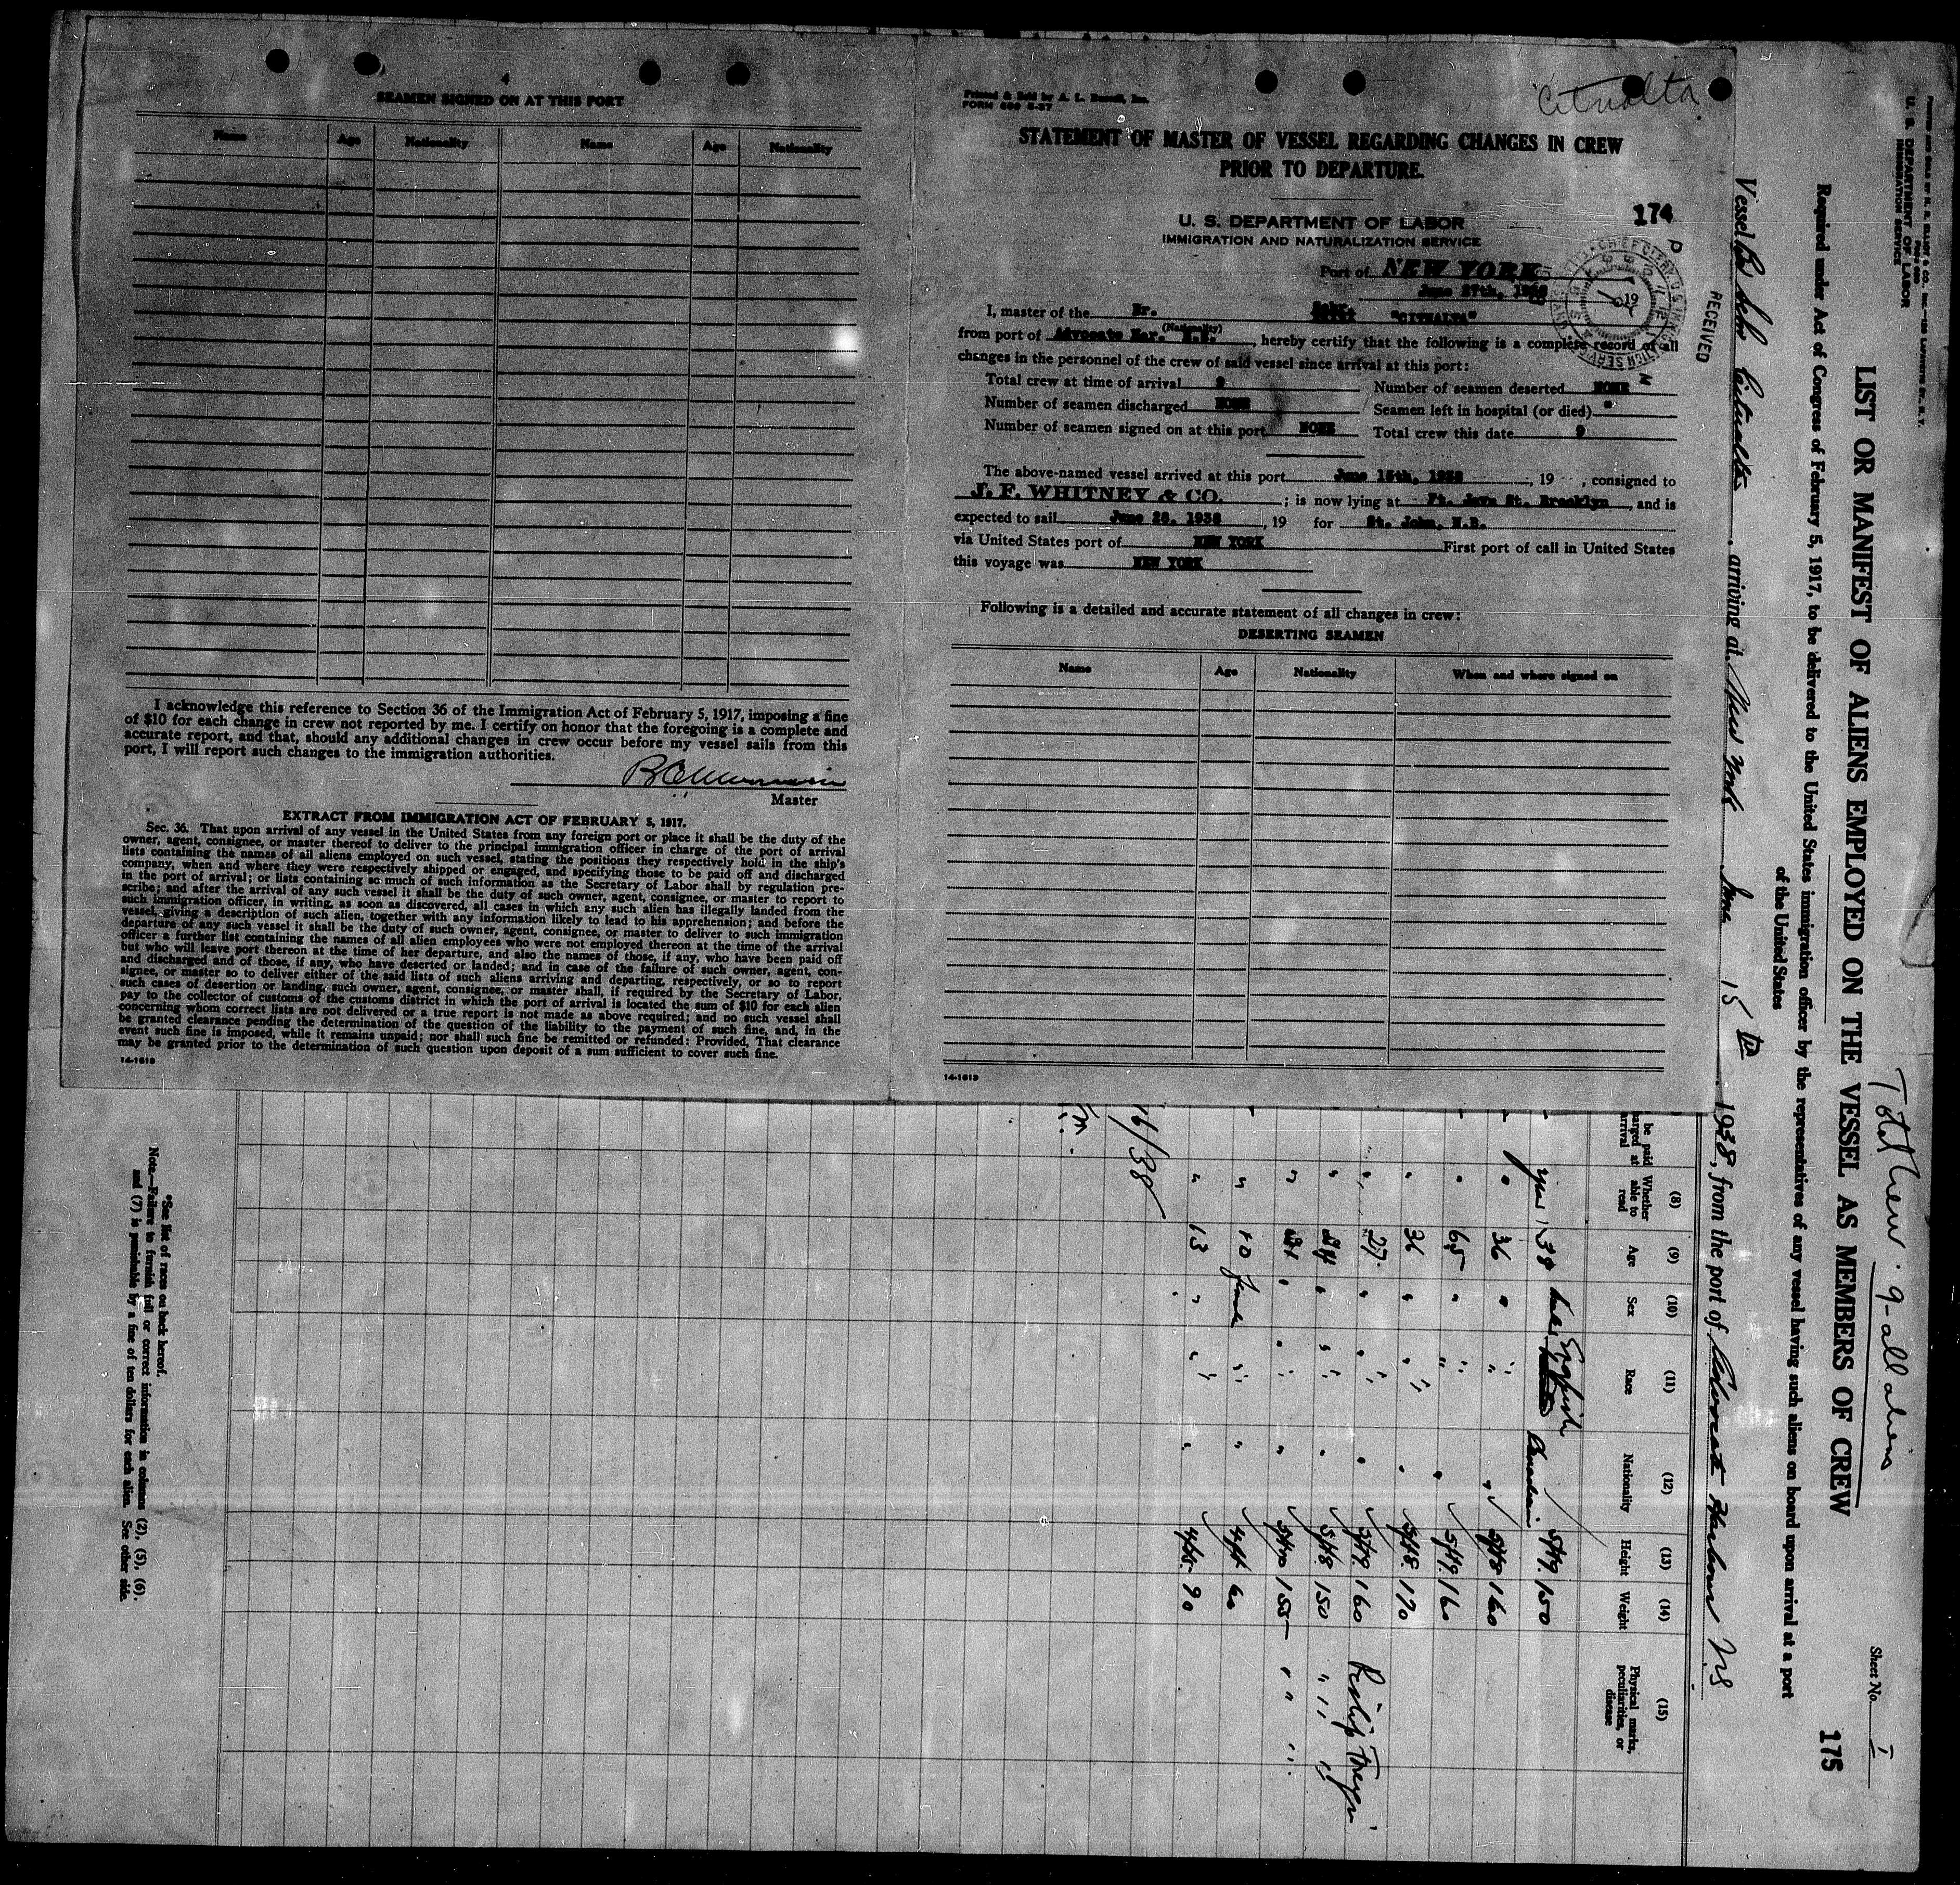 4
SEAMEN SIGNED ON AT THIS PORT
Name Age Nationality Name Age Nationality
I acknowledge this reference to Section 36 of the Immigration Act of February 5, 1917, imposing a fine
of $10 for each change in crew not reported by me. I certify on honor that the foregoing is a complete and
accurate report, and that, should any additional changes in crew occur before my vessel sails from this
port, I will report such changes to the immigration authorities.
Master
EXTRACT FROM IMMIGRATION ACT OF FEBRUARY 5, 1917.
Sec. 36. That upon arrival of any vessel in the United States from any foreign port or place it shall be the duty of the
owner, agent, consignee, or master thereof to deliver to the principal immigration officer in charge of the port of arrival
lists containing the names of all aliens employed on such vessel, stating the positions they respectively hold in the ship's
company, when and where they were respectively shipped or engaged, and specifying those to be paid off and discharged
in the port of arrival; or lists containing so much of such information as the Secretary of Labor shall by regulation pre-
scribe; and after the arrival of any such vessel it shall be the duty of such owner, agent, consignee, or master to report to
such immigration officer, in writing, as soon as discovered, all cases in which any such alien has illegally landed from the
vessel, giving a description of such alien, together with any information likely to lead to his apprehension; and before the
departure of any such vessel it shall be the duty of such owner, agent, consignee, or master to deliver to such immigration
officer a further list containing the names of all alien employees who were not employed thereon at the time of the arrival
but who will leave port thereon at the time of her departure, and also the names of those, if any, who have been paid off
and discharged and of those, if any, who have deserted or landed; and in case of the failure of such owner, agent, con-
signee, or master so to deliver either of the said lists of such aliens arriving and departing, respectively, or so to report
such cases of desertion or landing, such owner, agent, consignee, or master shall, if required by the Secretary of Labor,
pay to the collector of customs of the customs district in which the port of arrival is located the sum of $10 for each alien
concerning whom correct lists are not delivered or a true report is not made as above required; and no such vessel shall
be granted clearance pending the determination of the question of the liability to the payment of such fine, and, in the
event such fine is imposed, while it remains unpaid; nor shall such fine be remitted or refunded: Provided, That clearance
may be granted prior to the determination of such question upon deposit of a sum sufficient to cover such fine.
14-1613
Citnalta
Printed & Sold by A. L. Inc.
FORM 689 5-37
STATEMENT OF MASTER OF VESSEL REGARDING CHANGES IN CREW
PRIOR TO DEPARTURE.
U. S. DEPARTMENT OF LABOR
IMMIGRATION AND NATURALIZATION SERVICE
174
Port of NEW YORK
June 27th, 1938
RECEIVED
I, master of the Br. Schr. "CITNALTA"
(Nationality)
from port of Advocate Har. N.S., hereby certify that the following is a complete record of all
changes in the personnel of the crew of said vessel since arrival at this port:
Total crew at time of arrival 9 Number of seamen deserted NONE
Number of seamen discharged NONE Seamen left in hospital (or died) "
Number of seamen signed on at this port NONE Total crew this date 9
The above-named vessel arrived at this port June 15th, 1938, 19 , consigned to
J. F. WHITNEY & CO. ; is now lying at Ft. Java St. Brooklyn, and is
expected to sail June 28, 1938, 19 for St. John, N.B.
via United States port of NEW YORK First port of call in United States
this voyage was NEW YORK
Following is a detailed and accurate statement of all changes in crew:
DESERTING SEAMEN
Name Age Nationality When and where signed on
14-1613
U. S. DEPARTMENT OF LABOR
IMMIGRATION SERVICE
Total Crew 9 - all aliens
Sheet No. 1
LIST OR MANIFEST OF ALIENS EMPLOYED ON THE VESSEL AS MEMBERS OF CREW
175
Required under Act of Congress of February 5, 1917, to be delivered to the United States immigration officer by the representatives of any vessel having such aliens on board upon arrival at a port
of the United States
Vessel Br Schr Citnalta, arriving at New York June 15th, 1938, from the port of Advocate Harbour NS
(8) (9) (10) (11) (12) (13) (14) (15)
be paid
arged at
arrival Whether able to read Age Sex Race Nationality Height Weight Physical marks, peculiarities, or disease
yes 38 English Canadian 5ft9. 150
" 36 " " " 5ft8 160
" 65 " " " 5ft9. 160
" 36 " " " 5ft8. 170
" 27 " " " 5ft9. 160
" " " " 5ft8. 150 " " "
" " " " 5ft10 155 " " "
" 10 Female " " 4ft 60
" 13 " " " 4ft8. 90
16/38
*See list of races on back hereof.
Note.—Failure to furnish full or correct information in columns (2), (5), (6).
and (7) is punishable by a fine of ten dollars for each alien. See other side.